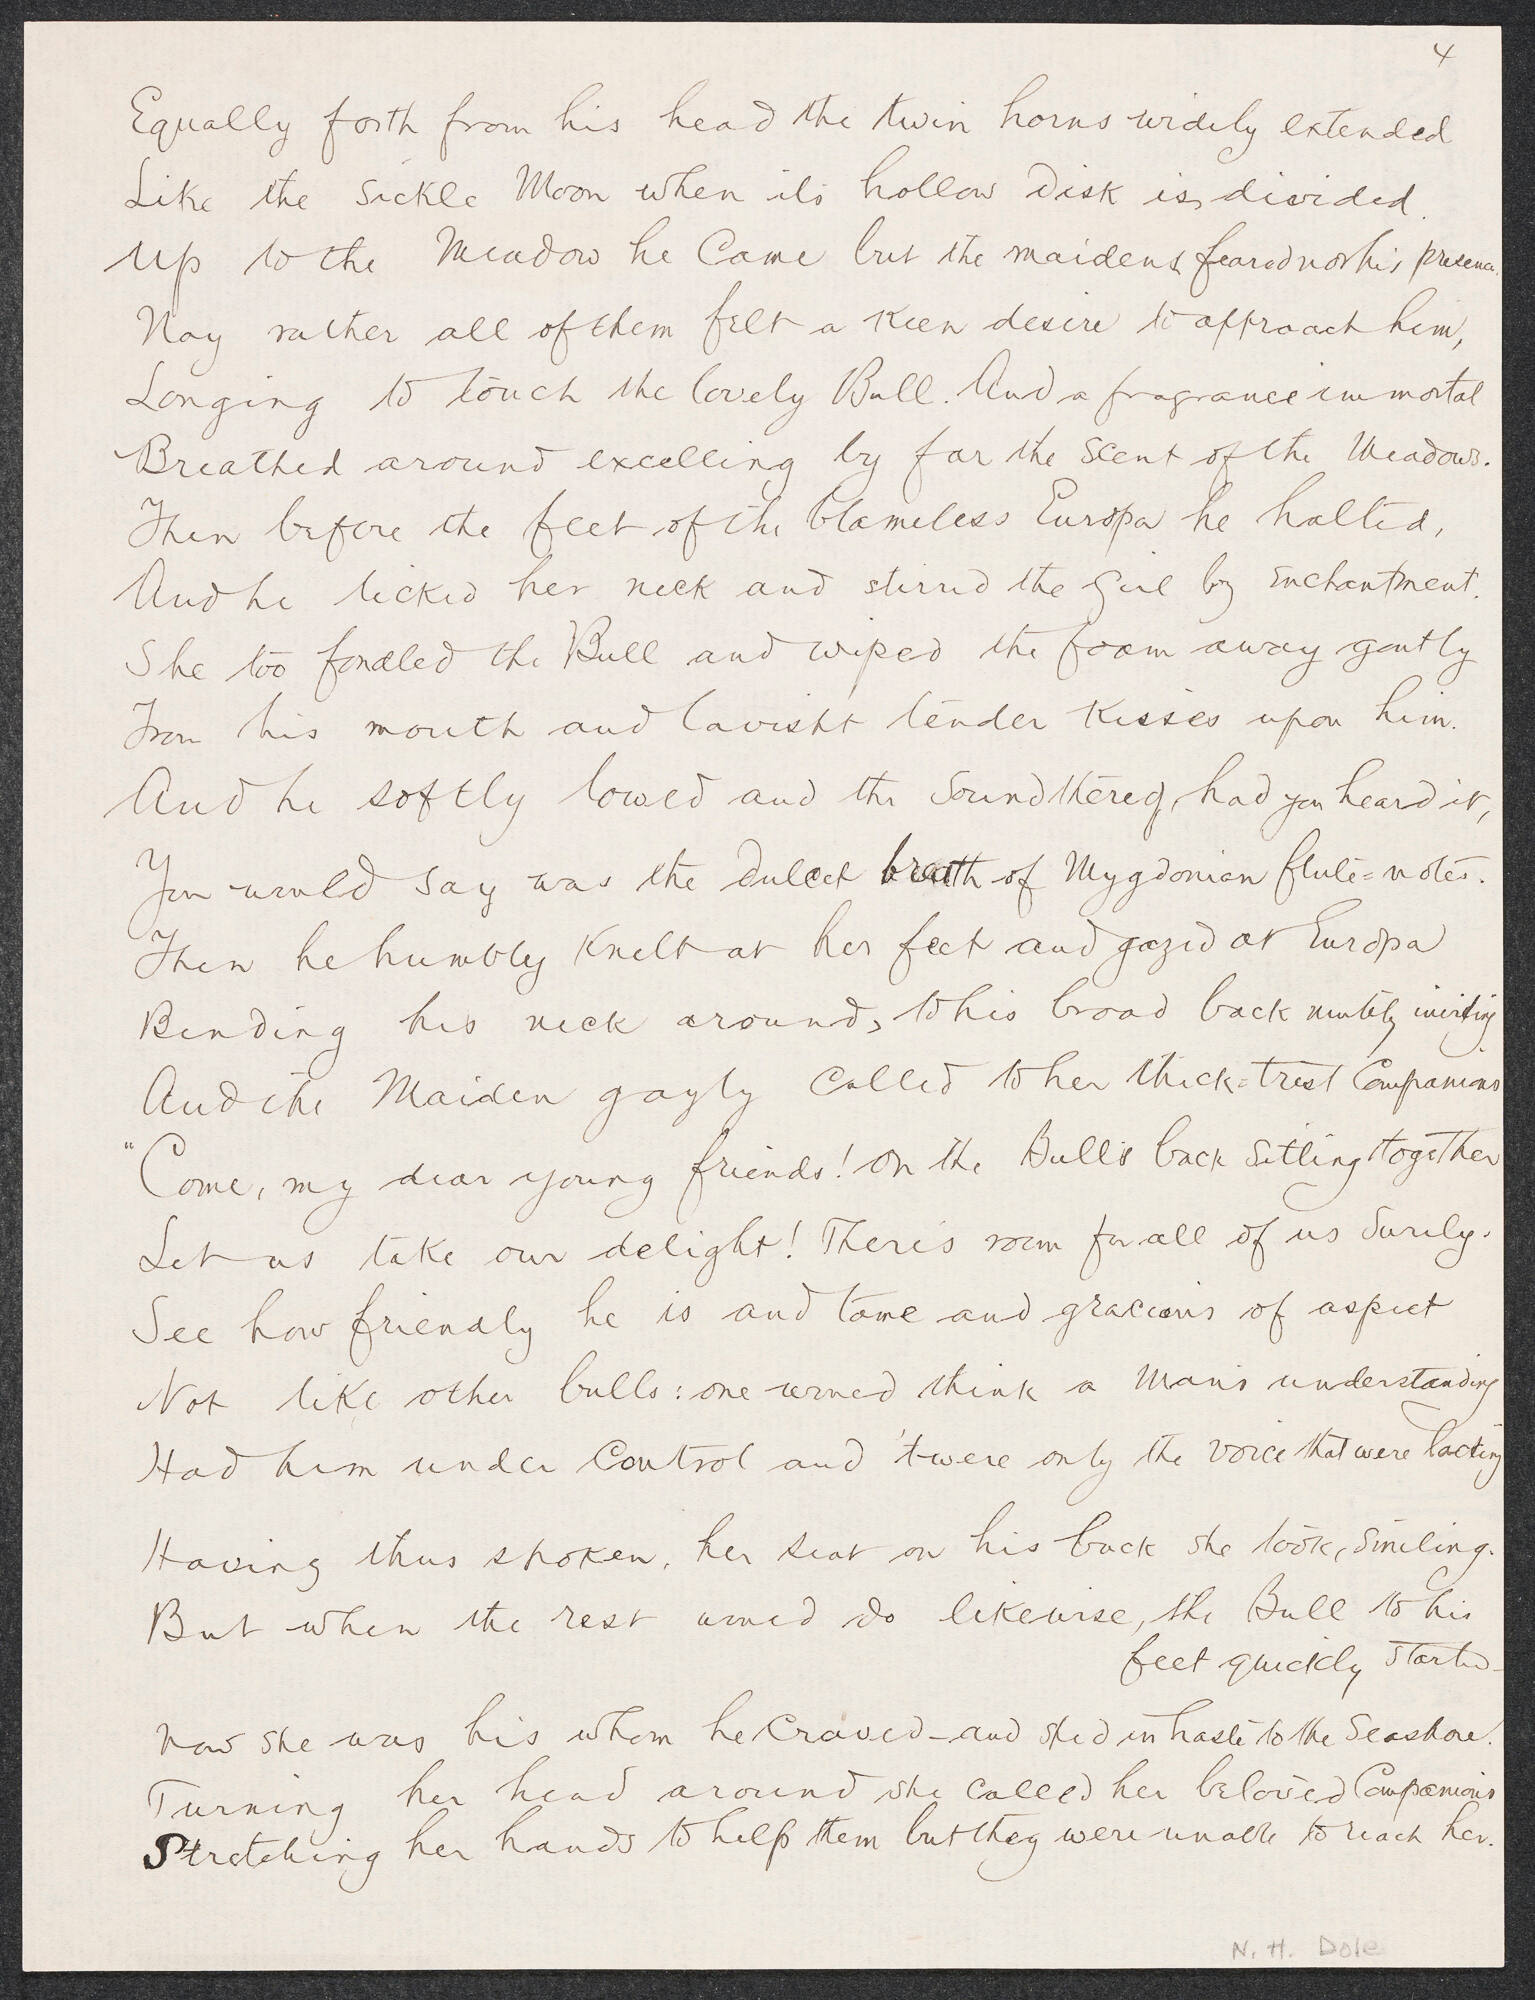 4
Equally forth from his head the twin horns widely extended
Like the Sickle Moon when its hollow Disk is divided.
Up to the Meadow he Came but the maidens feared not his presence.
Nay rather all of them felt a keen desire to approach him,
Longing to touch the lovely Bull. And a fragrance immortal
Breathed around excelling by far the Scent of the Meadows.
Then before the feet of the blameless Europa he halted,
And he licked her neck and stirred the Girl by Enchantment.
She too fondled the Bull and wiped the foam away gently
From his mouth and lavisht tender Kisses upon him.
And he softly lowed and the Sound thereof, had you heard it,
You would say was the dulcet breath of Mygdonian flute=notes.
Then he humbly Knelt at her feet and gazed at Europa
Bending his neck around, to his broad back mutely inviting
And the Maiden gayly Called to her thick=trest Companions
"Come, my dear young friends! On the Bull's back Sitting together
Let us take our delight! There's room for all of us Surely.
See how friendly he is and tame and gracious of aspect
Not like other bulls: one would think a Man's understanding
Had him under Control and 'twere only the voice that were lacking
Having thus spoken, her seat on his back she took, Smiling.
But when the rest would do likewise, the Bull to his
feet quickly Started—
Now she was his whom he Craved—and sped in haste to the Seashore.
Turning her head around she Called her beloved Companions
Stretching her hands to help them but they were unable to reach her.
N. H. Dole